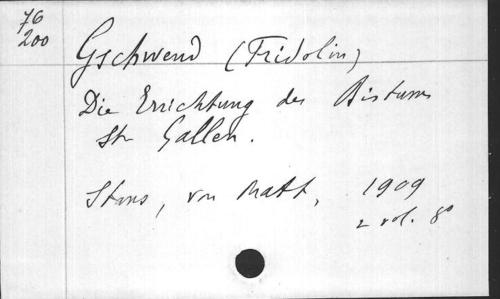 76
200
Gschwend (Fridolin)
Die Errichtung des Bistums
St. Gallen.
Stans, von Matt, 1909
2 vol. 8°